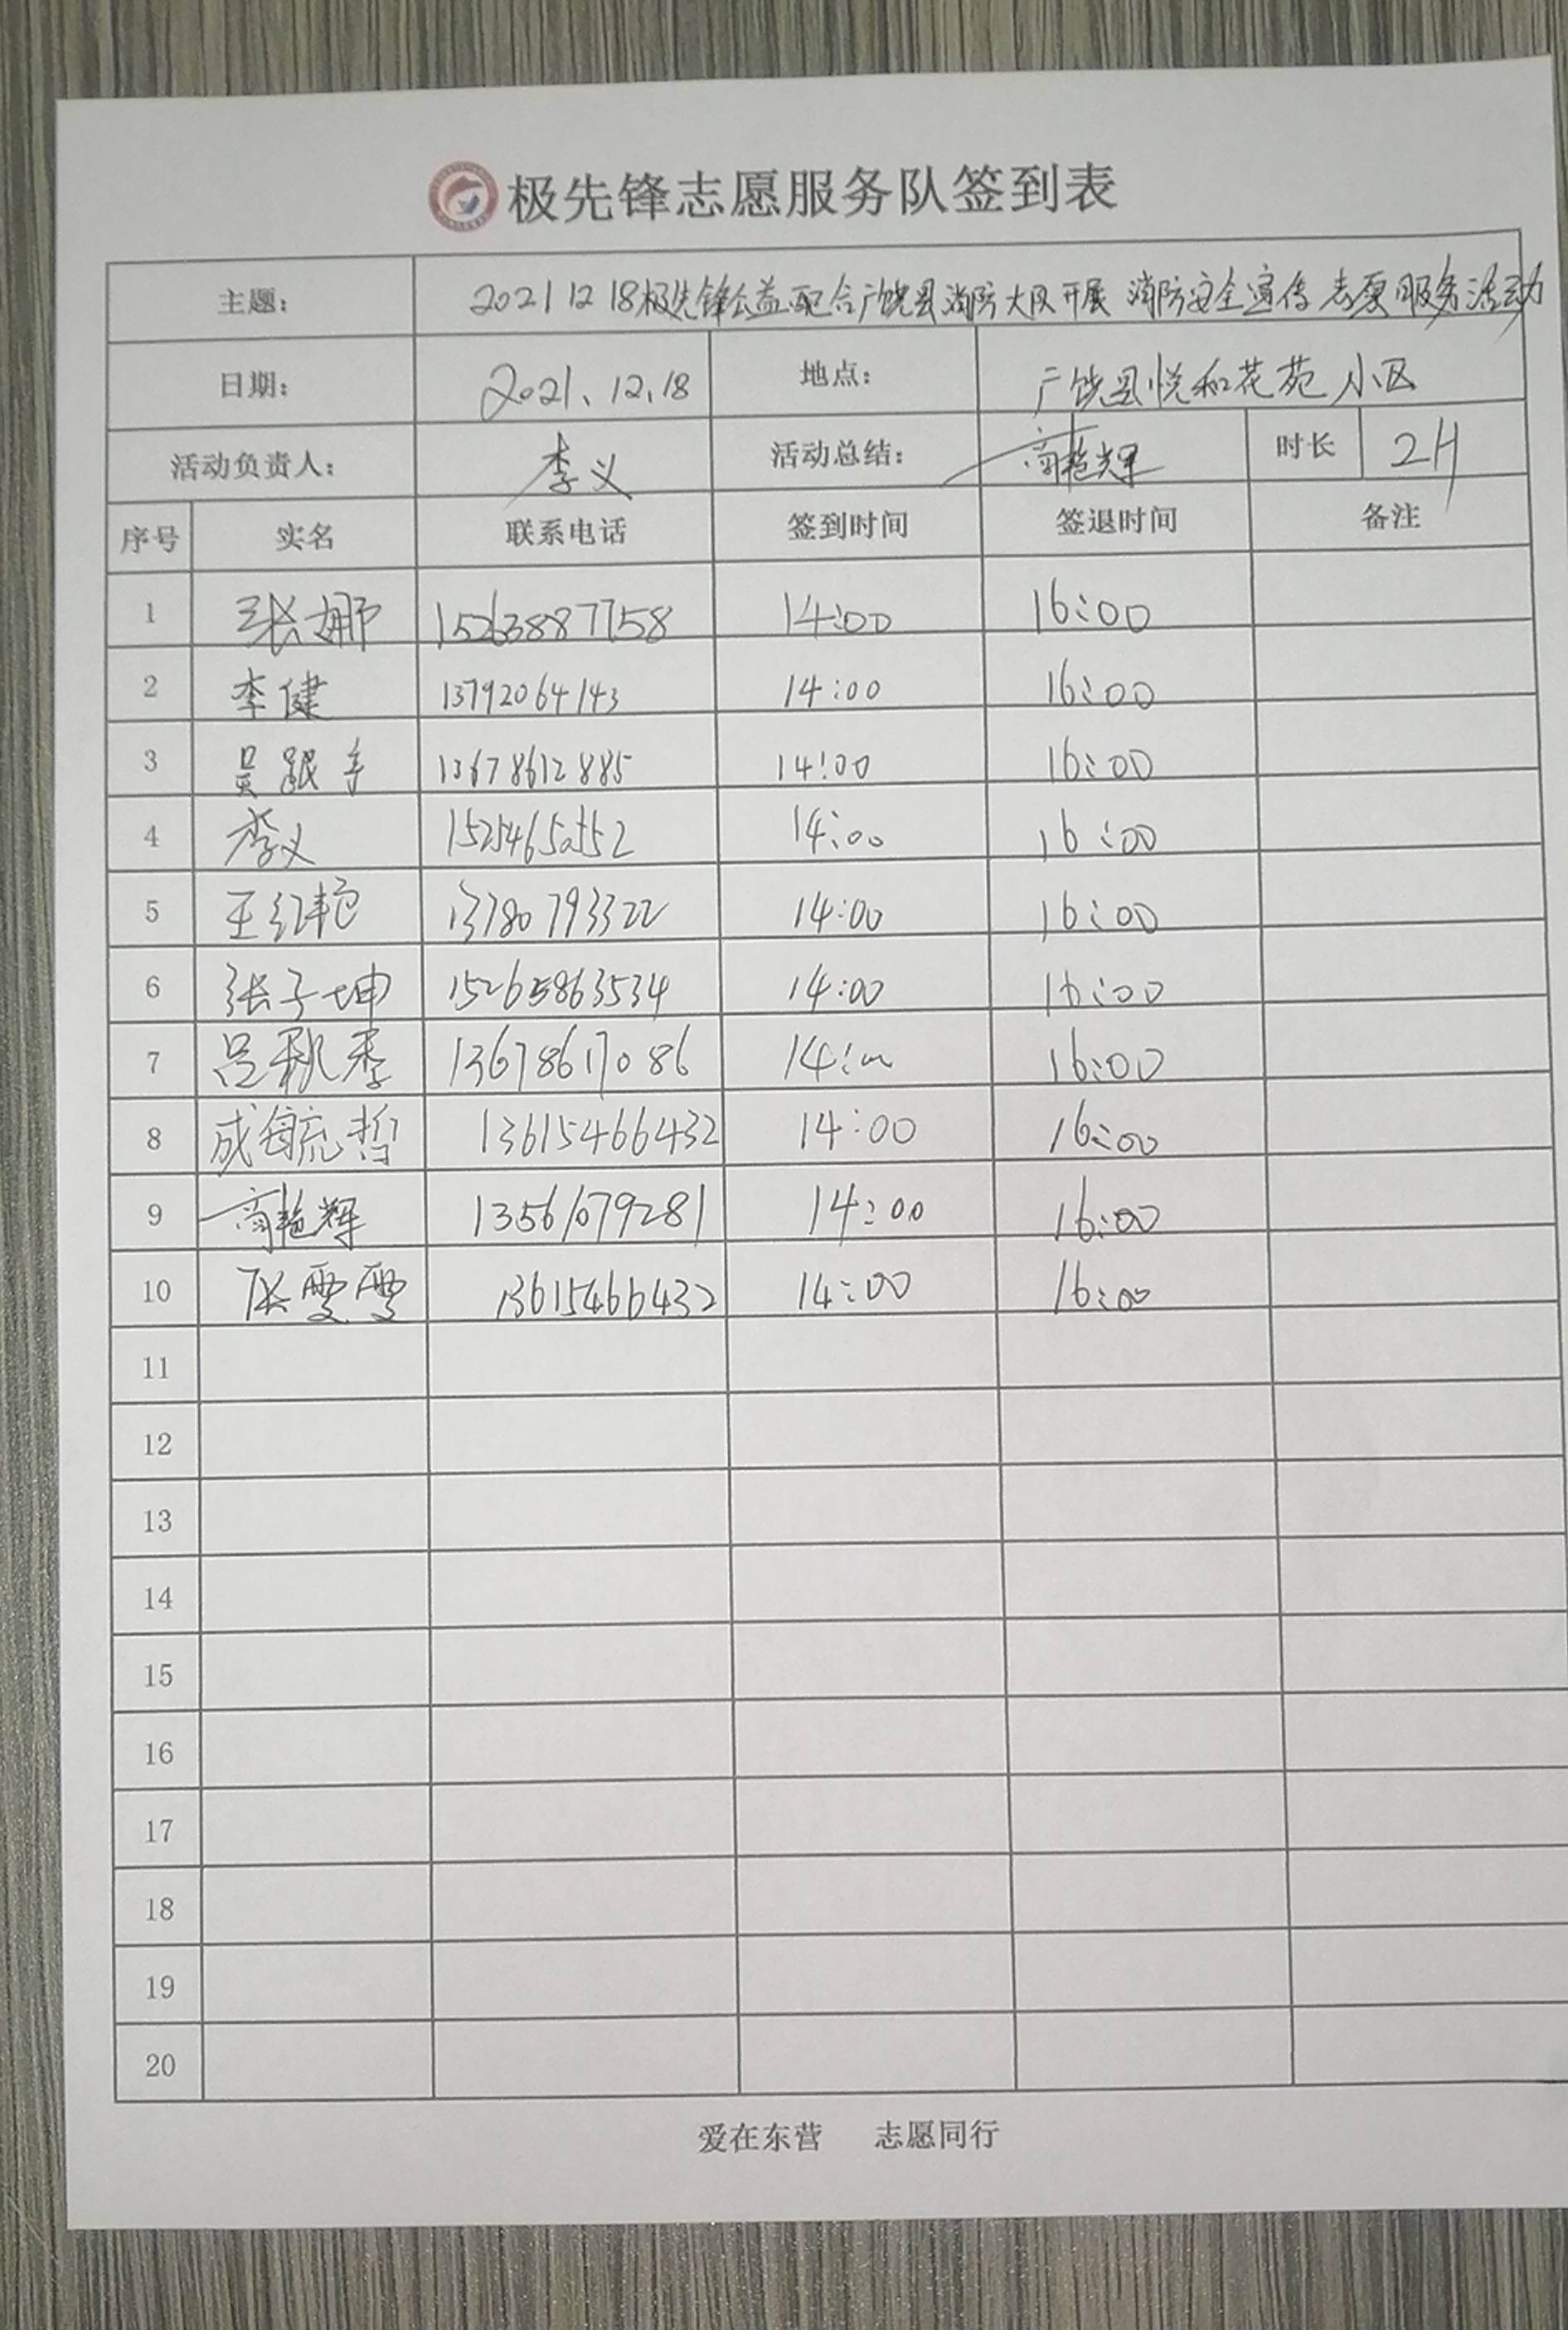 极先锋志愿服务队签到表
主题: 2021 12 18极先锋公益配合广饶县消防大队开展 消防安全宣传 志愿服务活动
日期: 2021、12、18 地点: 广饶县悦和花苑小区
活动负责人: 李义 活动总结: 商艳辉 时长 2H
序号 实名 联系电话 签到时间 签退时间 备注
1 张娜 15263887758 14:00 16:00
2 李健 13792064143 14:00 16:00
3 吴跟 13678612885 14:00 16:00
4 李义 14:00 16:00
5 王红艳 13780793322 14:00 16:00
6 张子坤 15265863534 14:00 16:00
7 吕秋季 13678617086 14:00 16:00
8 成毓哲 13615466432 14:00 16:00
9 商艳辉 13561079281 14:00 16:00
10 张雯雯 13615466432 14:00 16:00
11
12
13
14
15
16
17
18
19
20
爱在东营 志愿同行